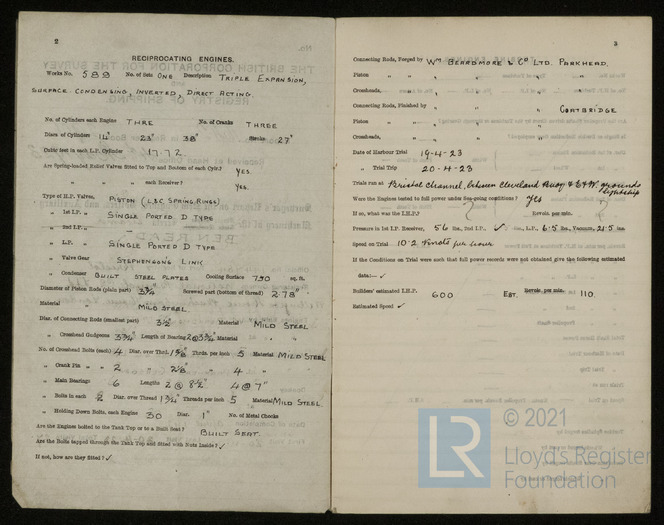 2
RECIPROCATING ENGINES.
Works No. 588 No. of Sets ONE Description TRIPLE EXPANSION,
SURFACE CONDENSING, INVERTED, DIRECT ACTING.
No. of Cylinders each Engine THRE No. of Cranks THREE
Diars. of Cylinders 14" 23" 38" Stroke 27"
Cubic feet in each L.P. Cylinder 17.72
Are Spring-loaded Relief Valves fitted to Top and Bottom of each Cylr.? YES.
" " " each Receiver? YES.
Type of H.P. Valves, PISTON (L.S.C. SPRING RINGS)
" 1st I.P. " SINGLE PORTED D TYPE
" 2nd I.P. " —
" L.P. " SINGLE PORTED D TYPE
" Valve Gear STEPHENSON'S LINK
" Condenser BUILT STEEL PLATES Cooling Surface 750 sq. ft.
Diameter of Piston Rods (plain part) 3¾" Screwed part (bottom of thread) 2.78"
Material MILD STEEL
Diar. of Connecting Rods (smallest part) 3½" Material MILD STEEL
" Crosshead Gudgeons 3¾" Length of Bearing 2@3¾" Material "
No. of Crosshead Bolts (each) 4 Diar. over Thrd. Thrds. per inch 5 Material MILD STEEL
" Crank Pin " 2 " " 2⅛" " 4 "
" Main Bearings 6 Lengths 2 @ 8½" 4 @ 7"
" Bolts in each 2 Diar. over Thread 1¾" Threads per inch 5 Material MILD STEEL
" Holding Down Bolts, each Engine 30 Diar. 1" No. of Metal Chocks
Are the Engines bolted to the Tank Top or to a Built Seat? BUILT SEAT.
Are the Bolts tapped through the Tank Top and fitted with Nuts Inside? ✓
If not, how are they fitted? ✓
3
Connecting Rods, Forged by WM BEARDMORE & CO LTD. PARKHEAD.
Piston " " " "
Crossheads, " " " "
Connecting Rods, Finished by " " COATBRIDGE
Piston " " " "
Crossheads, " " " "
Date of Harbour Trial 19-4-23
" Trial Trip 20-4-23
Trials run at Bristol Channel, between Cleveland Buoy & E & W. grounds
lightship
Were the Engines tested to full power under Sea-going conditions? Yes
If so, what was the I.H.P.? Revols. per min.
Pressure in 1st I.P. Receiver, 56 lbs., 2nd I.P., ✓ lbs., L.P. 6.5 lbs., Vacuum, 21.5 ins.
Speed on Trial 10.2 Knots per hour
If the Conditions on Trial were such that full power records were not obtained give the following estimated
data:— ✓
Builders' estimated I.H.P. 600 EST. Revols. per min. 110
Estimated Speed ✓
LR
© 2021
Lloyd's Register
Foundation